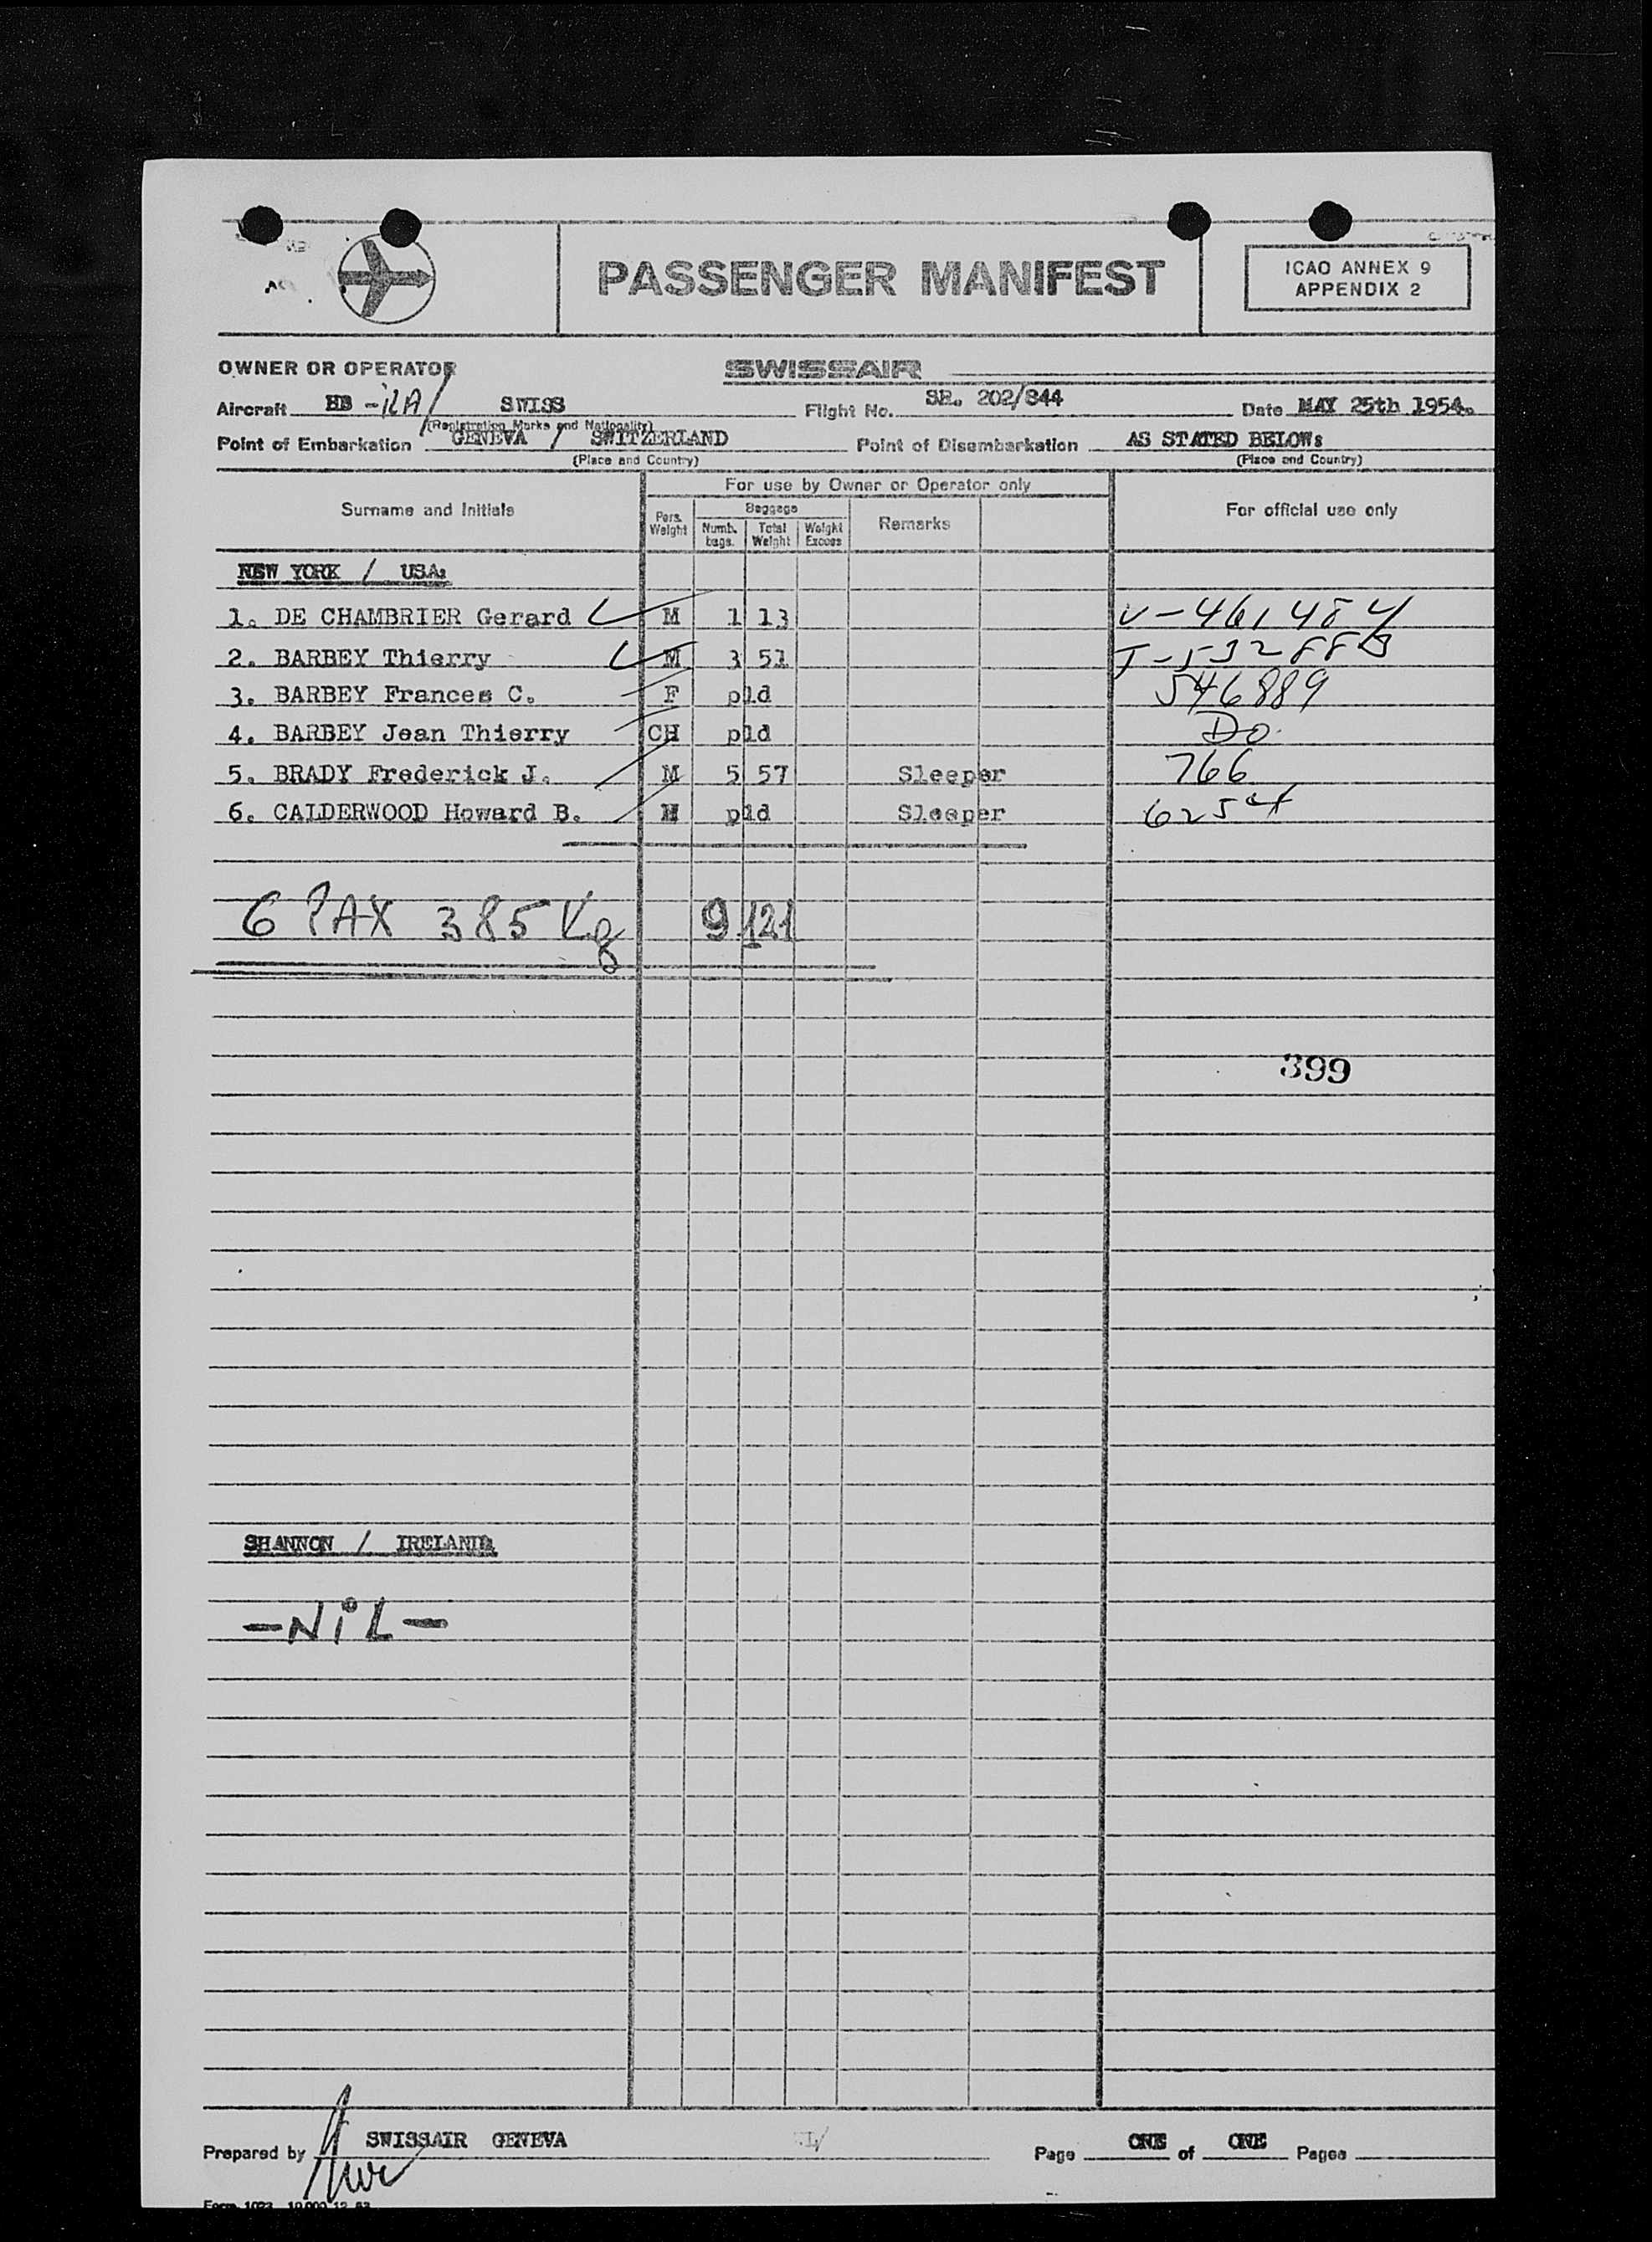 PASSENGER MANIFEST
ICAO ANNEX 9
APPENDIX 2
OWNER OR OPERATOR SWISSAIR
Aircraft HB - iLA / SWISS Flight No. SR. 202/844 Date MAY 25th 1954.
(Registration Marks and Nationality)
Point of Embarkation GENEVA / SWITZERLAND Point of Disembarkation AS STATED BELOW:
(Place and Country) (Place and Country)
For use by Owner or Operator only
Surname and Initials Pers. Weight Baggage Numb. bags. Total Weight Weight Excess Remarks For official use only
NEW YORK / USA:
1. DE CHAMBRIER Gerard M 1 13 V-461484
2. BARBEY Thierry M 3 51
3. BARBEY Frances C. F pld 546889
4. BARBEY Jean Thierry CH pld Do.
5. BRADY Frederick J. M 5 57 Sleeper 766
6. CALDERWOOD Howard B. M pld Sleeper 6254
6 PAX 385 Kg 9 121
399
SHANNON / IRELAND:
-NiL-
Prepared by SWISSAIR GENEVA Page ONE of ONE Pages
Form 1023 10.000 12. 53